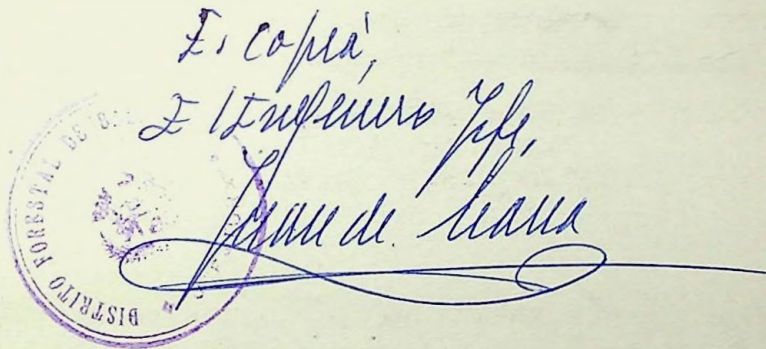 Es copia,
El Ingeniero Jefe,
Juan de
DISTRITO FORESTAL DE